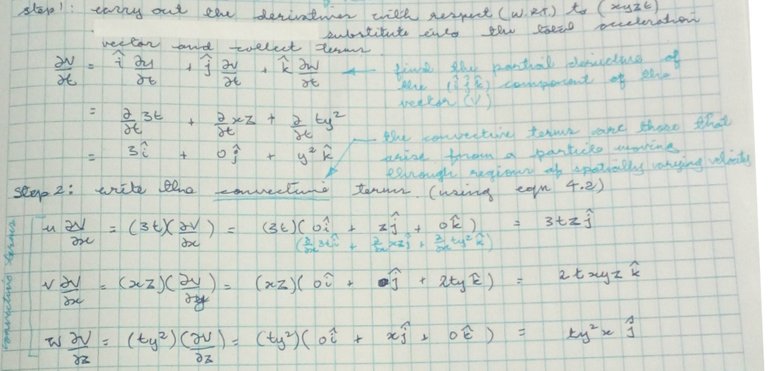 step 1: carry out the derivatives with respect (w.r.t) to (xyzt)
substitute into the total acceleration
vector and collect terms
∂V/∂t = î ∂u/∂t + ĵ ∂v/∂t + k̂ ∂w/∂t ← find the partial derivative of the (î ĵ k̂) component of the vector (V)
= ∂/∂t 3t + ∂/∂t xz + ∂/∂t ty²
= 3î + 0ĵ + y² k̂
the convective terms are those that
arise from a particle moving
through regions of spatially varying velocity
Step 2: write the convective terms (using eqn 4.2)
convective terms
u ∂V/∂x = (3t)(∂V/∂x) = (3t)(0î + zĵ + 0k̂) = 3tz ĵ
(∂/∂x 3tî + ∂/∂x xzĵ + ∂/∂x ty² k̂)
v ∂V/∂x = (xz)(∂V/∂y) = (xz)(0î + 0ĵ + 2ty k̂) = 2txyz k̂
w ∂V/∂z = (ty²)(∂V/∂z) = (ty²)(0î + xĵ + 0k̂) = ty²x ĵ